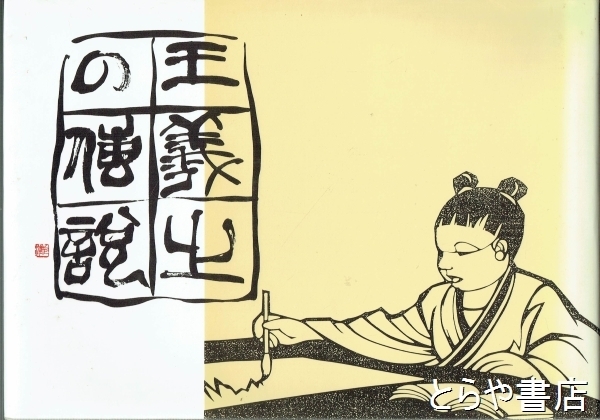 王羲之
の傳説
とらや書店